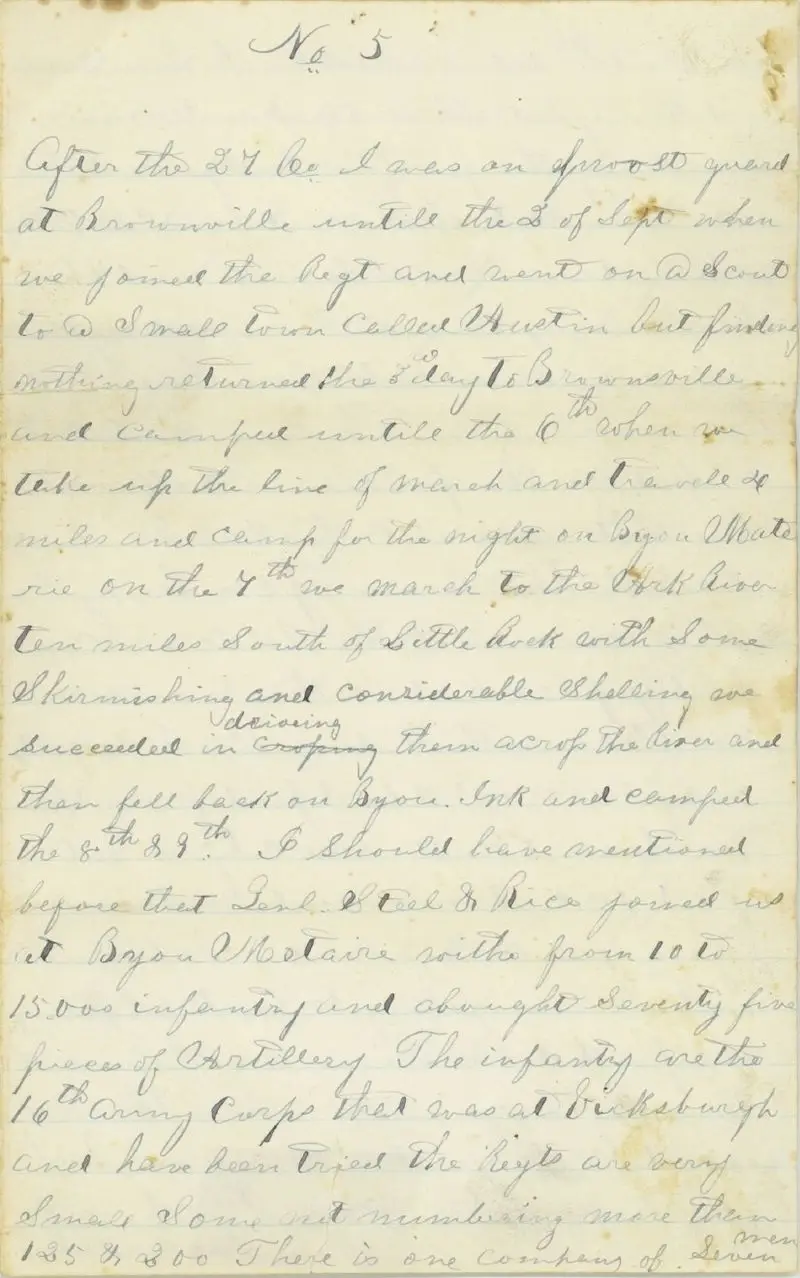 No 5
After the 27 Co. I was on provost guard
at Brownville untill the 2 of Sept when
we joined the Regt and went on a Scout
to a Small town Called Austin but finding
nothing returned the 3d day to Brownsville
and camped untill the 6th when we
take up the line of march and travele 4
miles and camp for the night on Byou Mate
rie on the 7th we march to the Ark River
ten miles South of Little Rock with Some
Skirmishing and considerable Shelling we
succeeded in croping driveing them across the River and
then fell back on Byou. Ink and camped
the 8th & 9th. I should have mentioned
before that Genl. Steel & Rice joined us
at Byou Metaire withe from 10 to
15.000 infantry and abought Seventy five
pieces of Artillery The infanty are the
16th Army Corps that was at Vicksburgh
and have been tried the Regts are very
Small Some not numbering more then
125 & 200 There is one company of Seven men